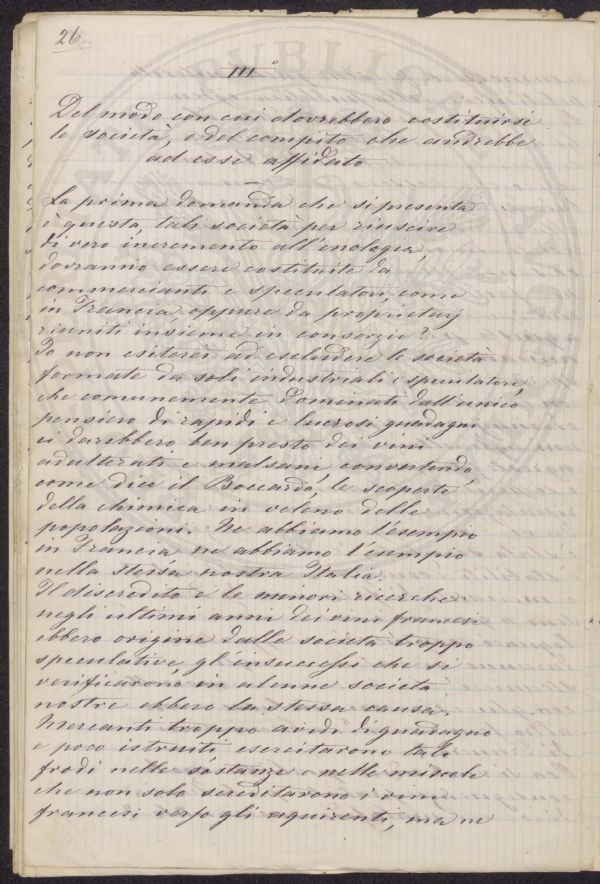 26
III°
Del modo con cui dovrebbero costituirsi
le società, e del compito che andrebbe
ad esse affidato
La prima domanda che si presenta
è questa, tali società per riuscire
di vero incremento all'enologia,
dovranno essere costituite da
commercianti e speculatori, come
in Francia, oppure da proprietarj
riuniti insieme in consorzio?
Io non esiterei ad escludere le società
formate da soli industriali e speculatori,
che comunemente dominati dall'unico
pensiero di rapidi e lucrosi guadagni
ci darebbero ben presto dei vini
adulterati e malsani, convertendo,
come dice il Boccardo, le scoperte
della chimica in veleno delle
popolazioni. Ne abbiamo l'esempio
in Francia ne abbiamo l'esempio
nella stessa nostra Italia.
Il discredito e le minori ricerche
negli ultimi anni dei vini francesi
ebbero origine dalle società troppo
speculative, gl'insuccessi che si
verificarono in alcune società
nostre ebbero la stessa causa.
Mercanti troppo avidi di guadagno
e poco istruiti esercitarono tali
frodi nelle sostanze e nelle miscele
che non solo screditarono i vini
francesi verso gli aquirenti, ma ne